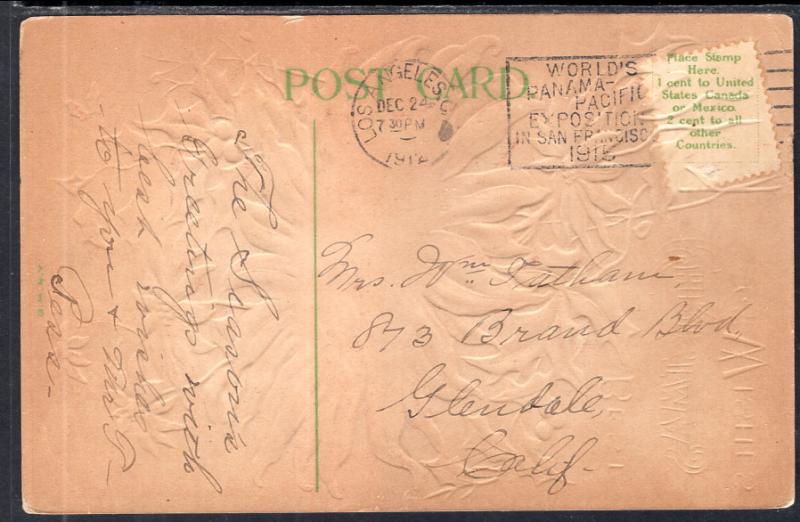 POST CARD
LOS ANGELES, C
DEC 24
7 30 PM
1912
WORLD'S
PANAMA-
PACIFIC
EXPOSITION
IN SAN FRANCISCO
1915
Place Stamp
Here.
1 cent to United
States Canada
or Mexico.
2 cent to all
other
Countries.
The Season's
Greetings with
best wishes
to you & Mr
Mrs. Wm.
873 Brand Blvd.
Glendale,
Calif.